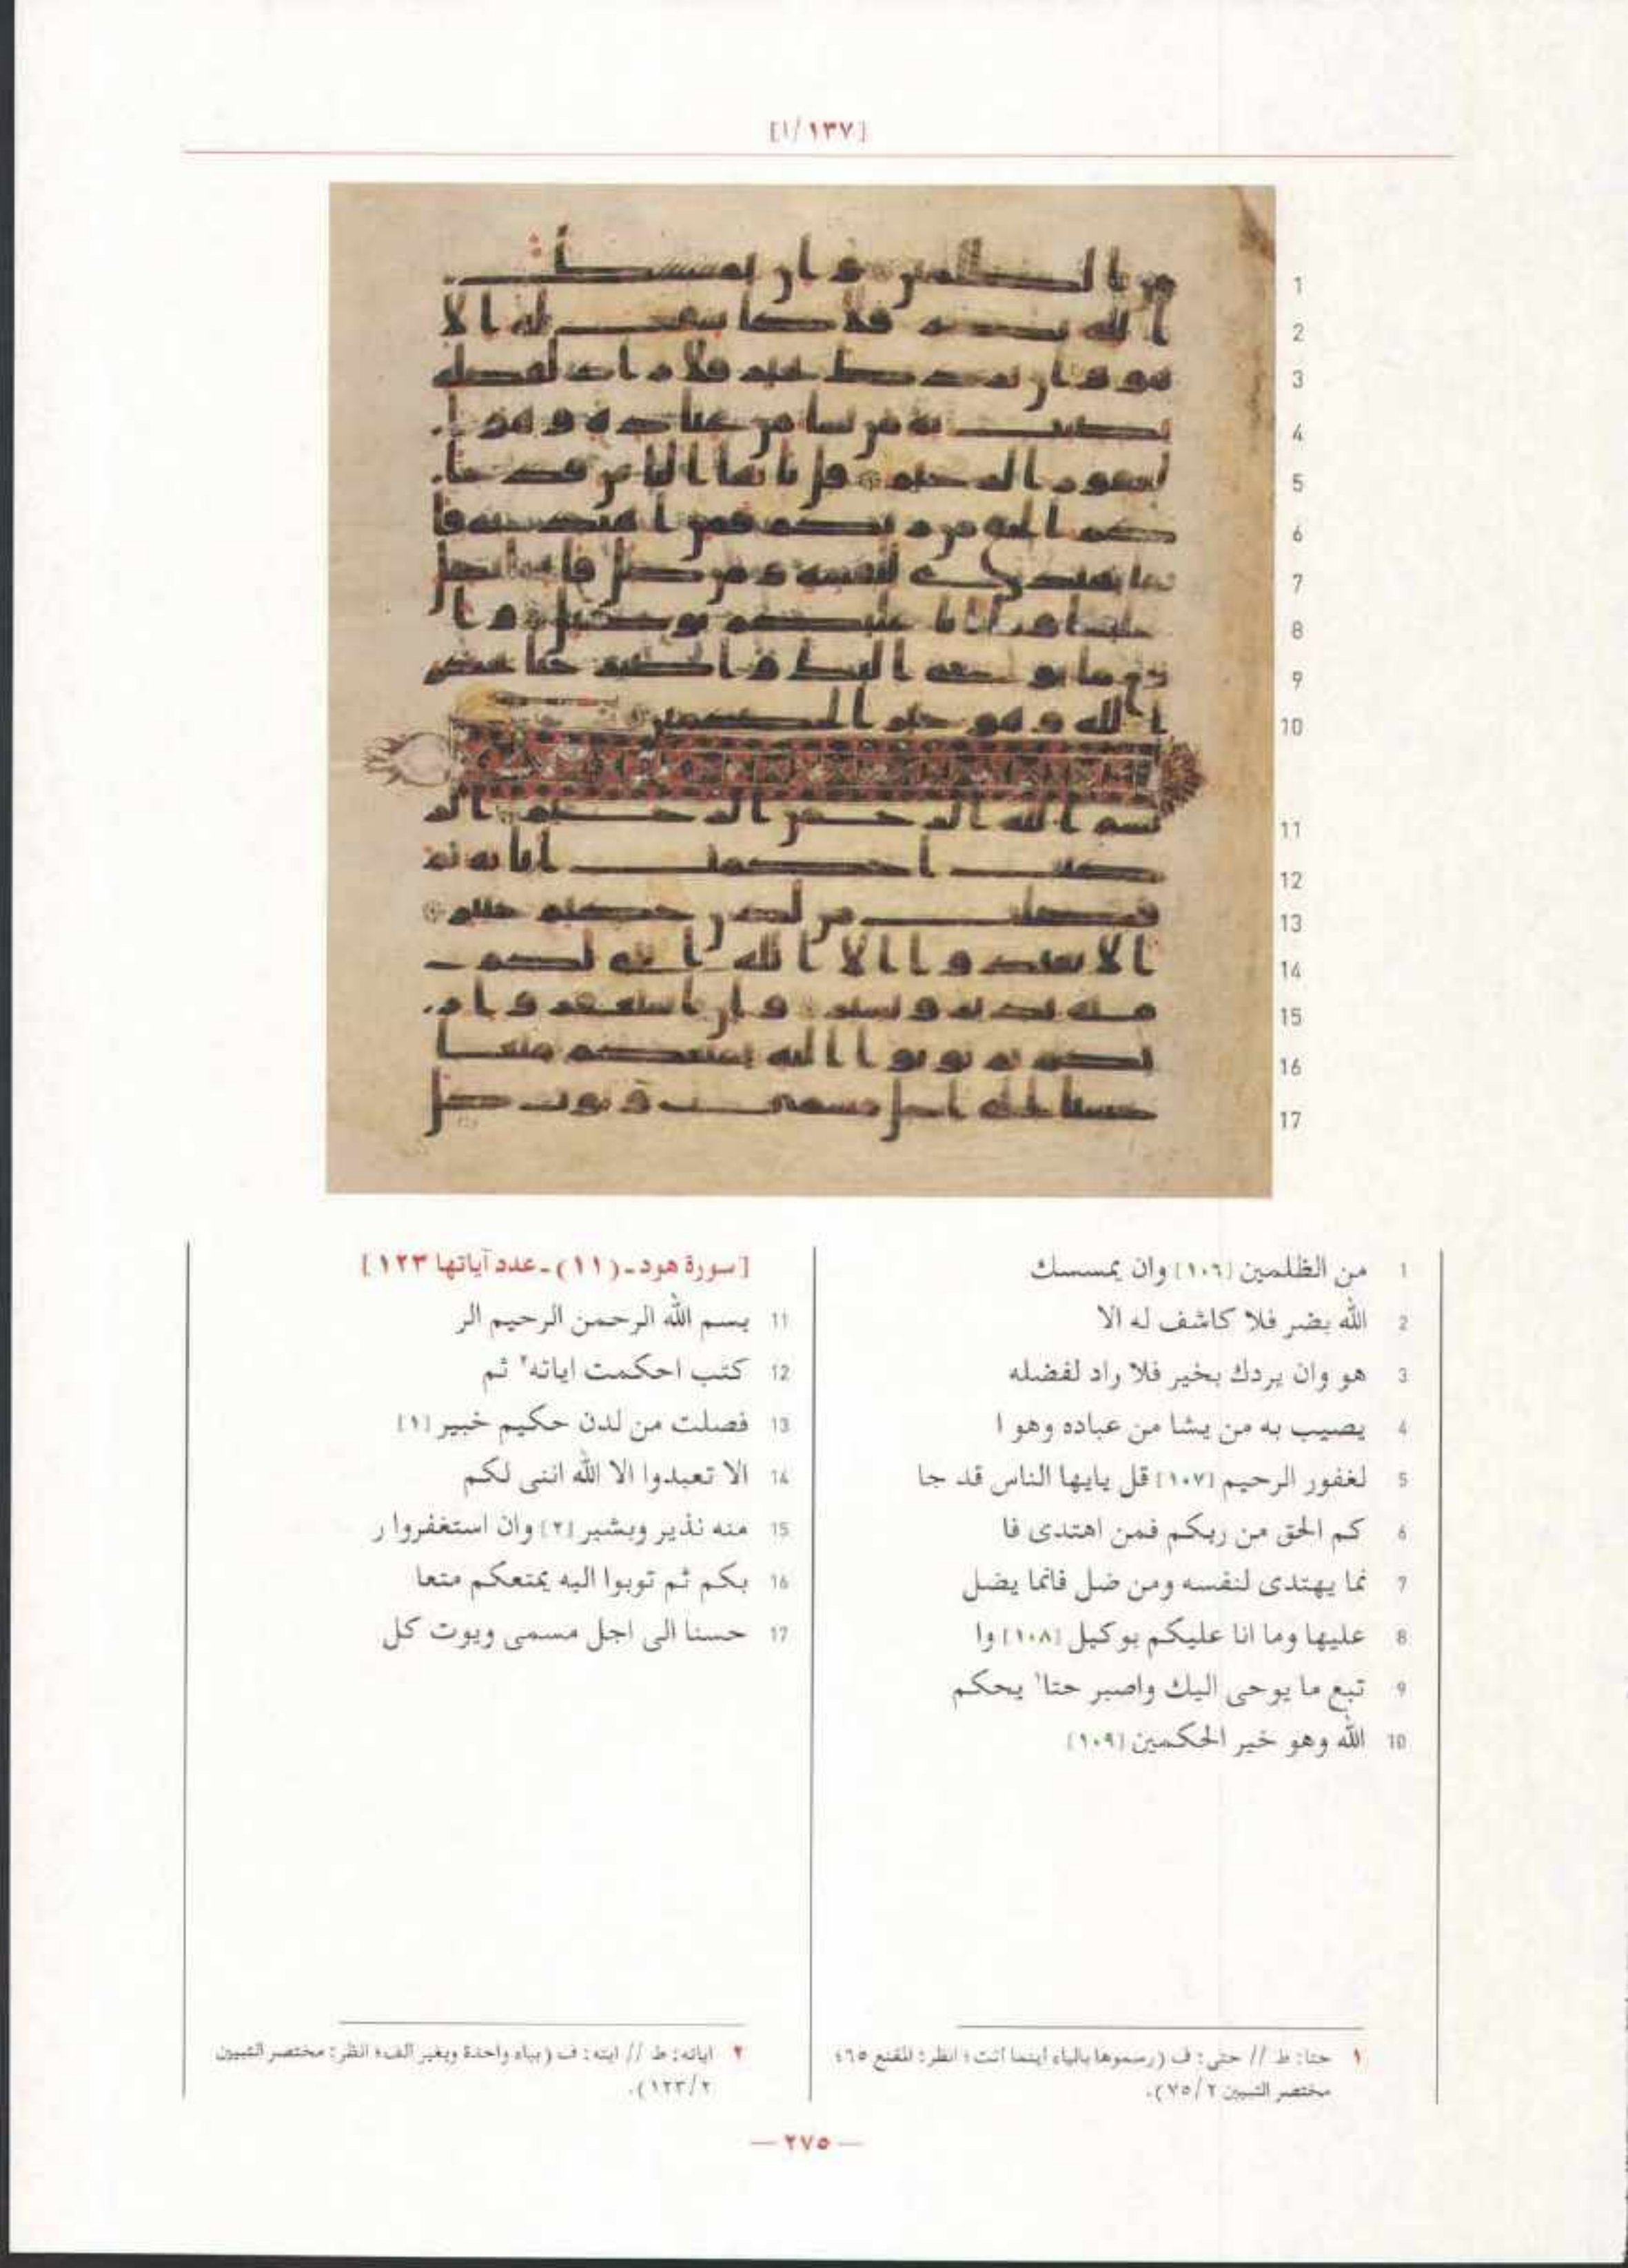 [١/١٣٧]
1
2
3
4
5
6
7
8
9
10
11
12
13
14
15
16
17
1 من الظلمين [١٠٦] وان يمسسك
2 الله بضر فلا كاشف له الا
3 هو وان يردك بخير فلا راد لفضله
4 يصيب به من يشا من عباده وهو ا
5 لغفور الرحيم [١٠٧] قل يايها الناس قد جا
6 كم الحق من ربكم فمن اهتدى فا
7 نما يهتدى لنفسه ومن ضل فانما يضل
8 عليها وما انا عليكم بوكيل [١٠٨] وا
9 تبع ما يوحى اليك واصبر حتا١ يحكم
10 الله وهو خير الحكمين [١٠٩]
[سورة هود ـ (١١) ـ عدد آياتها ١٢٣]
11 بسم الله الرحمن الرحيم الر
12 كتب احكمت اياته٢ ثم
13 فصلت من لدن حكيم خبير [١]
14 الا تعبدوا الا الله اننى لكم
15 منه نذير وبشير [٢] وان استغفروا ر
16 بكم ثم توبوا اليه يمتعكم متعا
17 حسنا الى اجل مسمى ويوت كل
١ حتا: ط // حتى: ف (رسموها بالياء أينما أتت؛ انظر: المقنع ٦٥؛
مختصر التبيين ٢/٧٥).
٢ اياته: ط // ايته: ف (بياء واحدة وبغير ألف؛ انظر: مختصر التبيين
٢/١٢٣).
— ٢٧٥ —